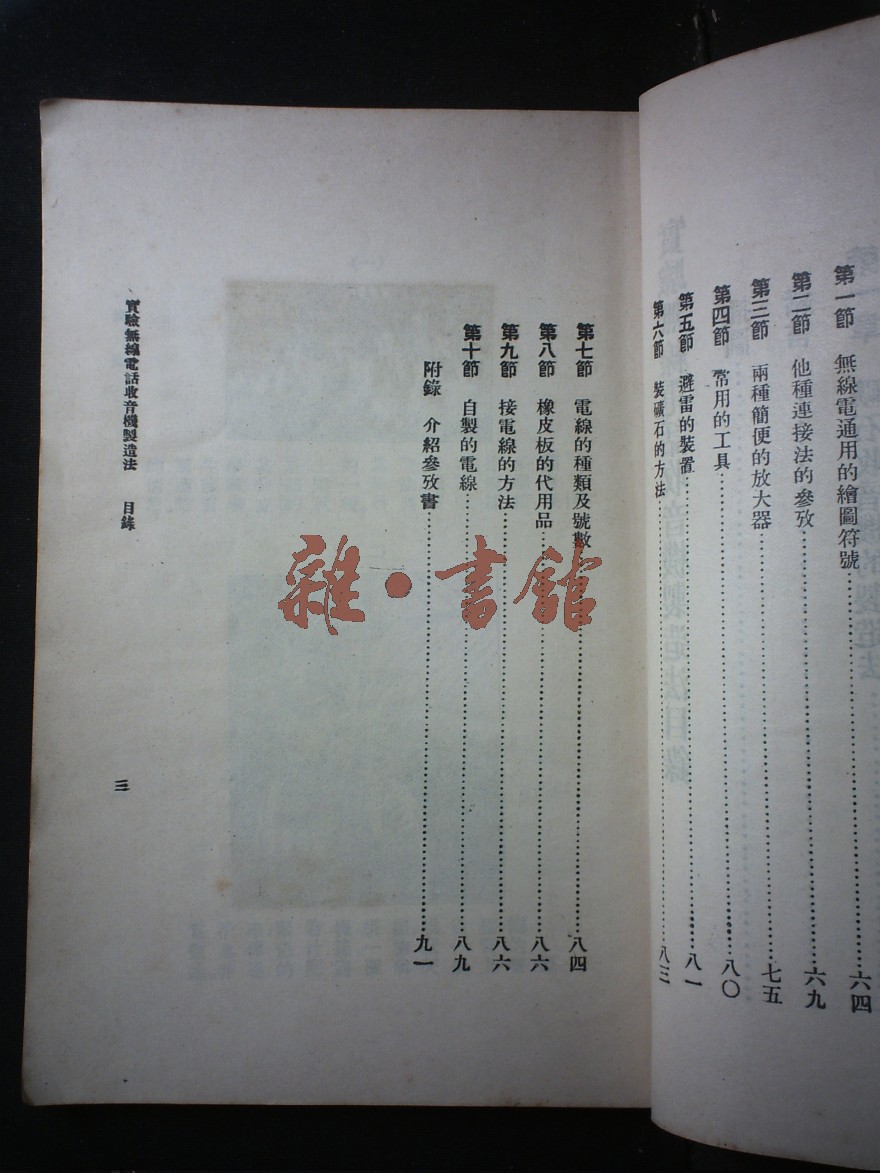 第一節 無線電通用的繪圖符號……六四
第二節 他種連接法的參攷……六九
第三節 兩種簡便的放大器……七五
第四節 常用的工具……八〇
第五節 避雷的裝置……八一
第六節 裝礦石的方法……八三
第七節 電線的種類及號數……八四
第八節 橡皮板的代用品……八六
第九節 接電線的方法……八六
第十節 自製的電線……八九
附錄 介紹參攷書……九一
實驗無線電話收音機製造法 目錄
三
雜·書館